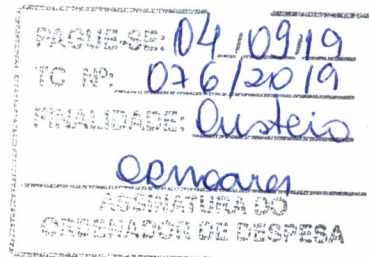 PAGUE-SE: 04/09/19
TC Nº: 076/2019
FINALIDADE: Custeio
ASSINATURA DO
ORDENADOR DE DESPESA